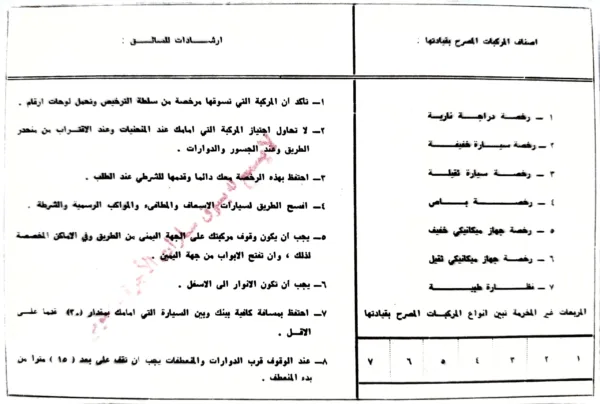 اصناف المركبات المصرح بقيادتها :
١ — رخصة دراجة نارية
٢ — رخصة سيارة خفيفة
٣ — رخصة سيارة ثقيلة
٤ — رخصة باص
٥ — رخصة جهاز ميكانيكي خفيف
٦ — رخصة جهاز ميكانيكي ثقيل
٧ — نظارة طبية
المربعات غير المخرمة تبين انواع المركبات المصرح بقيادتها
١ ٢ ٣ ٤ ٥ ٦ ٧
ارشادات للسائق :
١— تأكد أن المركبة التي تسوقها مرخصة من سلطة الترخيص وتحمل لوحات ارقام .
٢— لا تحاول اجتياز المركبة التي امامك عند المنحنيات وعند الاقتراب من منحدر
الطريق وعند الجسور والدوارات .
٣— احتفظ بهذه الرخصة معك دائما وقدمها للشرطي عند الطلب .
٤— افسح الطريق لسيارات الاسعاف والمطافىء والمواكب الرسمية والشرطة .
٥— يجب أن يكون وقوف مركبتك على الجهة اليمنى من الطريق وفي الاماكن المخصصة
لذلك ، وان تفتح الابواب من جهة اليمين .
٦— يجب أن تكون الانوار الى الاسفل .
٧— احتفظ بمسافة كافية بينك وبين السيارة التي امامك بمقدار (٣٠) قدما على
الاقل .
٨— عند الوقوف قرب الدوارات والمنعطفات يجب أن تقف على بعد (١٥) مترا من
بدء المنعطف .